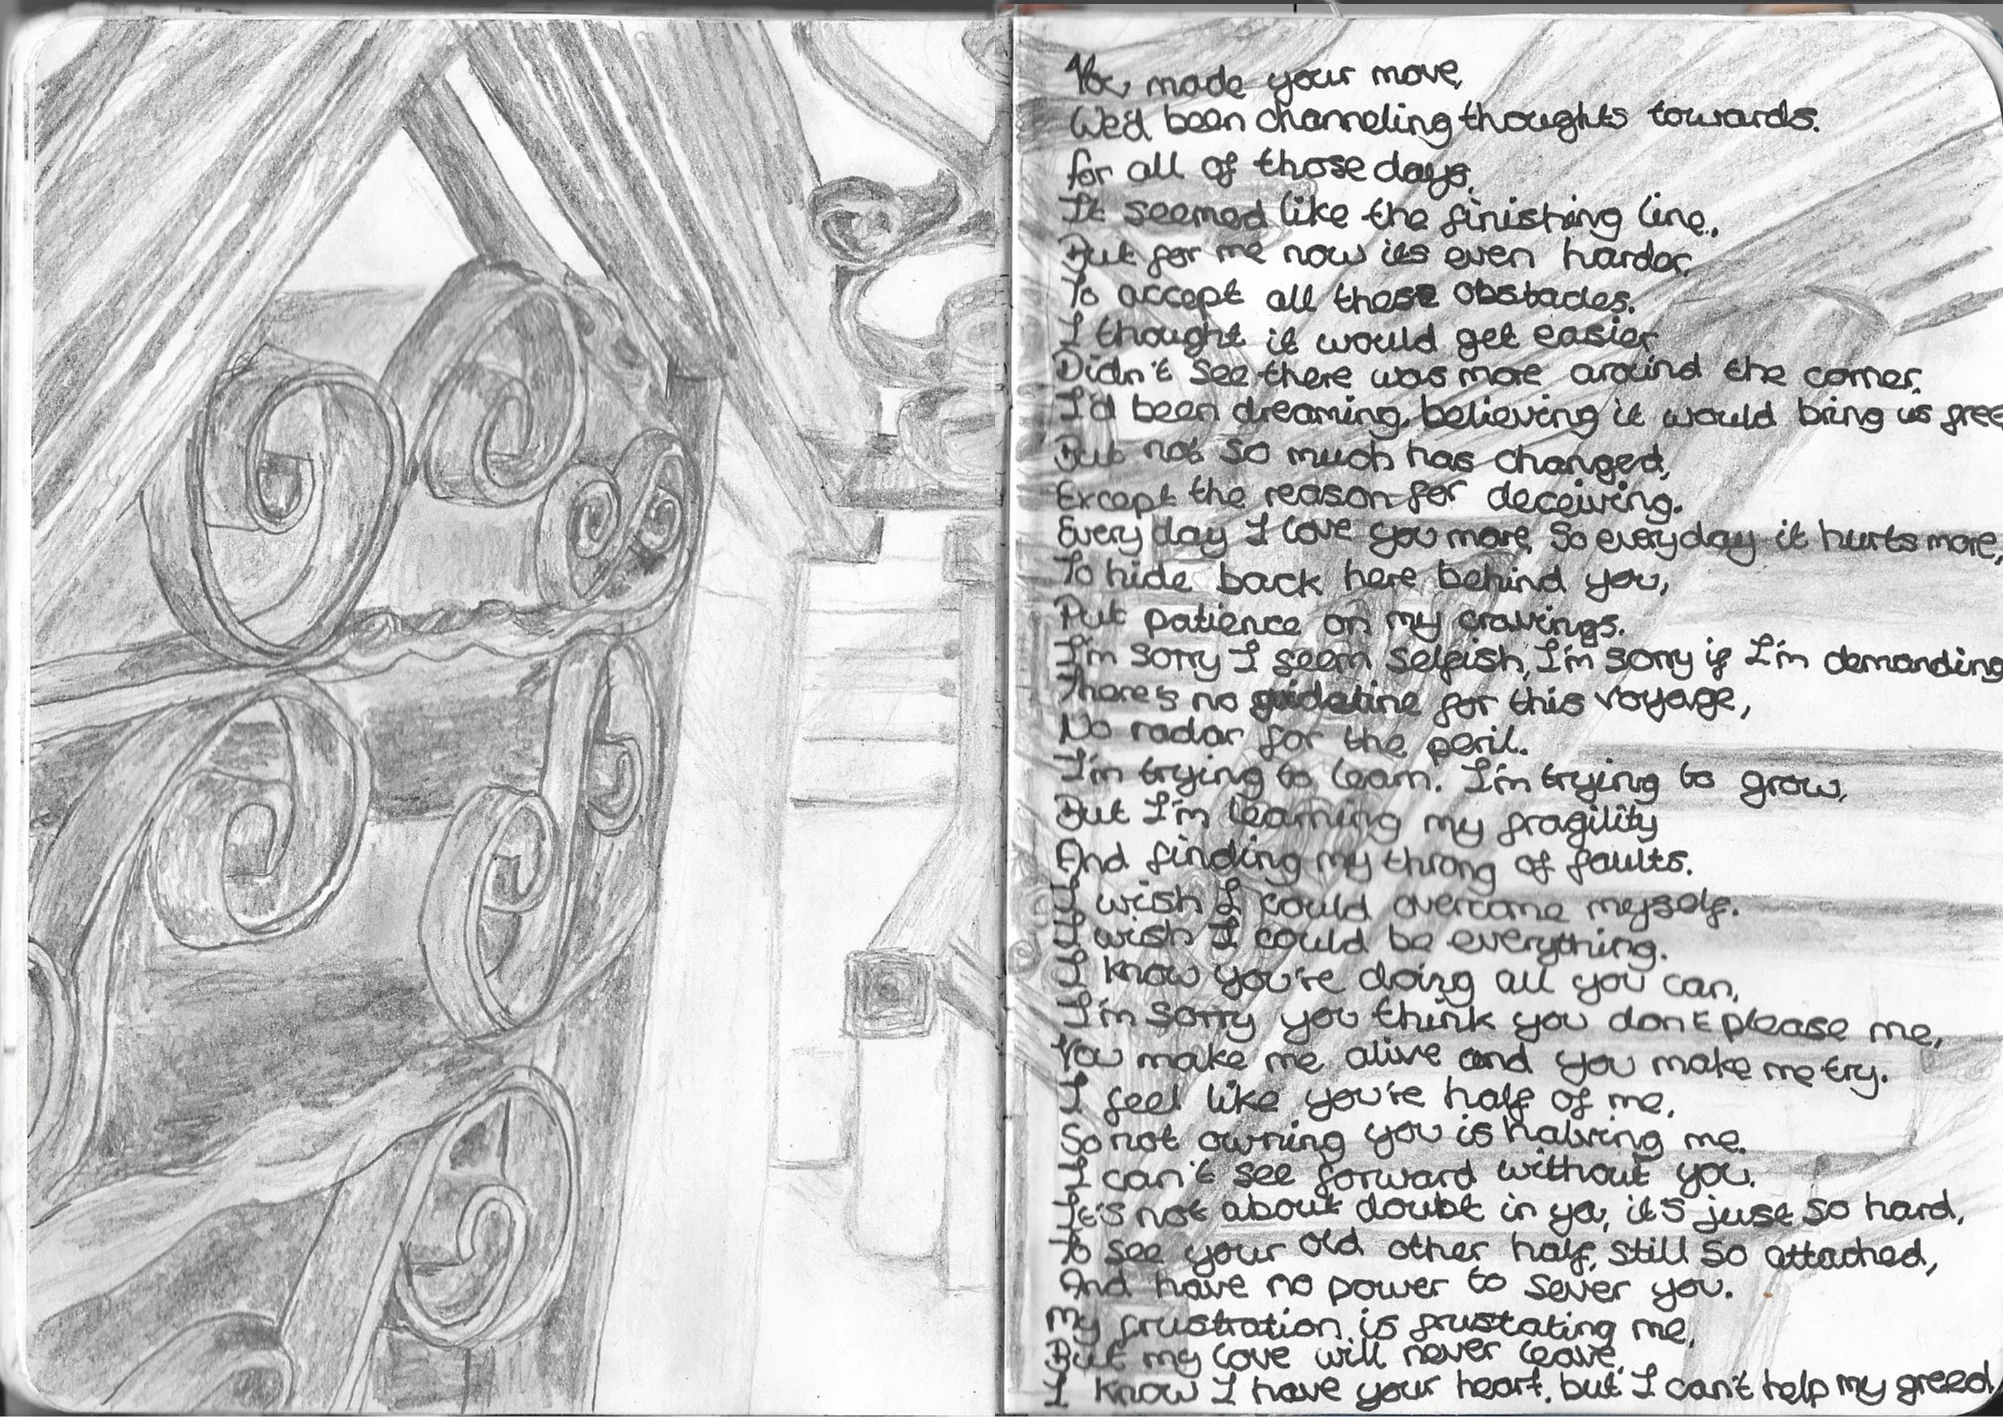 You made your move,
We'd been channeling thoughts towards.
for all of those days.
It seemed like the finishing line.,
But for me now its even harder.
To accept all these obstacles.
I thought it would get easier
Didn't see there was more around the corner.
I'd been dreaming, believing it would bring us free
But not so much has changed,
Except the reason for deceiving.
Every day I love you more, So everyday it hurts more,
To hide back here behind you,
Put patience on my cravings.
I'm sorry I seem selfish, I'm sorry if I'm demanding
There's no guideline for this voyage,
No radar for the peril.
I'm trying to learn. I'm trying to grow,
But I'm learning my fragility
And finding my throng of faults.
I wish I could overcome meyself.
I wish I could be everything.
I know you're doing all you can,
I'm sorry you think you don't please me,
You make me alive and you make me try.
I feel like you're half of me,
So not owning you is halving me.
I can't see forward without you.
It's not about doubt in ya, it's just so hard,
To see your old other half, still so attached,
And have no power to sever you.
My frustration is frustating me,
But my love will never leave.
I know I have your heart, but I can't help my greed